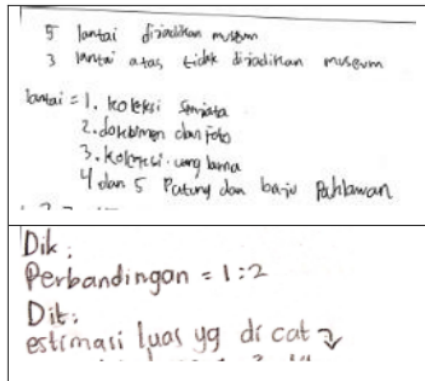 5 lantai dijadikan museum
3 lantai atas, tidak dijadikan museum
lantai = 1. koleksi senjata
2. dokumen dan foto
3. koleksi uang lama
4 dan 5 Patung dan baju Pahlawan
Dik :
Perbandingan = 1:2
Dit:
estimasi luas yg di cat